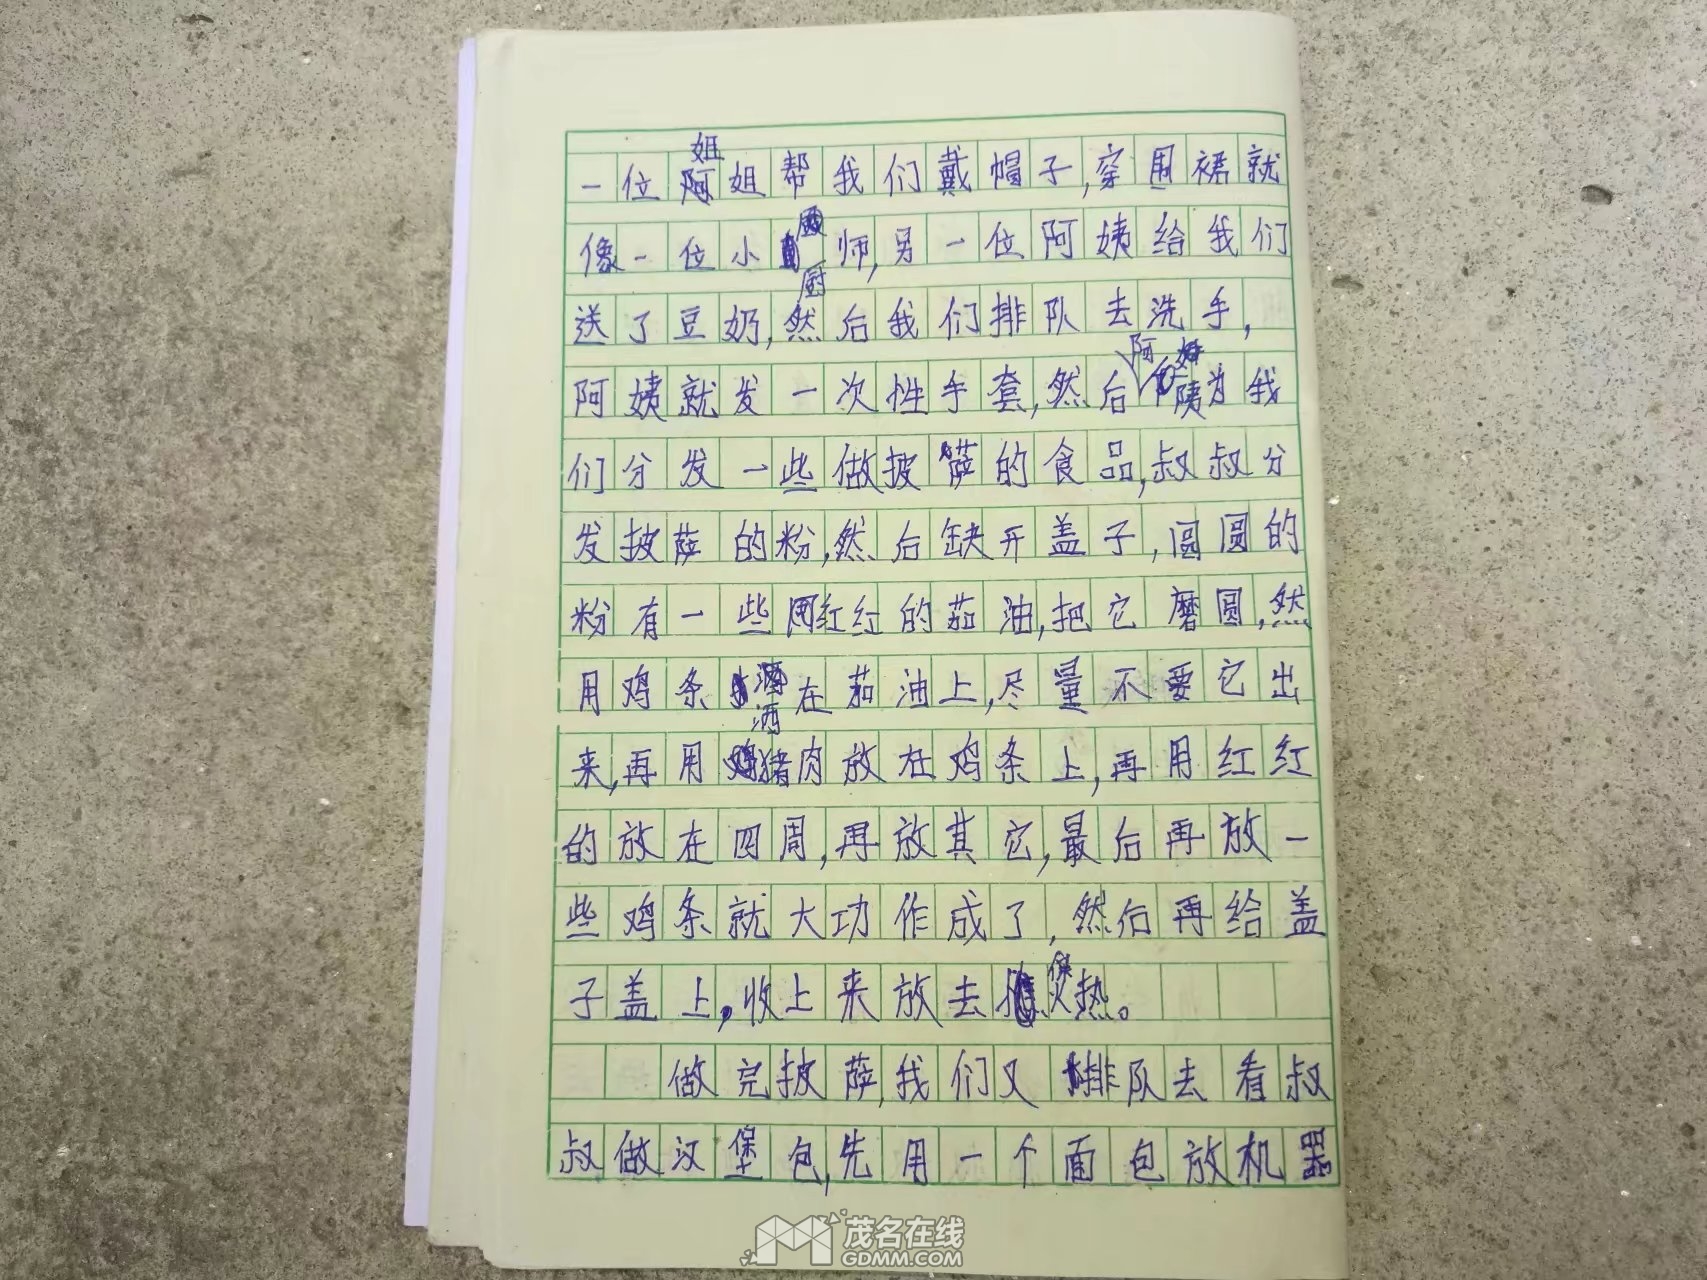 一位姐姐帮我们戴帽子,穿围裙就
像一位小厨师,另一位阿姨给我们
送了豆奶,然后我们排队去洗手,
阿姨就发一次性手套,然后阿姨为我
们分发一些做披萨的食品,叔叔分
发披萨的粉,然后缺开盖子,圆圆的
粉有一些红红的茄油,把它磨圆,然
用鸡条洒在茄油上,尽量不要它出
来,再用猪肉放在鸡条上,再用红红
的放在四周,再放其它,最后再放一
些鸡条就大功作成了,然后再给盖
子盖上,收上来放去煲热。
做完披萨,我们又排队去看叔
叔做汉堡包,先用一个面包放机器
茂名在线
GDMM.COM